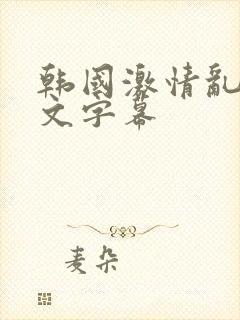 韩国激情乱
文字幕
麦朵